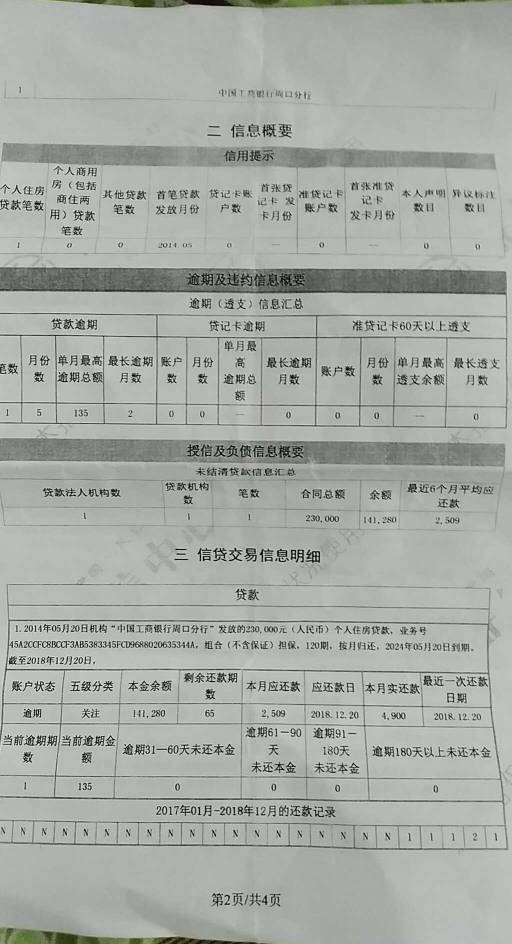 1 中国工商银行周口分行
二 信息概要
信用提示
个人住房贷款笔数 个人商用房（包括商住两用）贷款笔数 其他贷款笔数 首笔贷款发放月份 贷记卡账户数 首张贷记卡 发卡月份 准贷记卡账户数 首张准贷记卡 发卡月份 本人声明数目 异议标注数目
1 0 0 2014.05 0 — 0 — 0 0
逾期及违约信息概要
逾期（透支）信息汇总
贷款逾期 贷记卡逾期 准贷记卡60天以上透支
笔数 月份数 单月最高逾期总额 最长逾期月数 账户数 月份数 单月最高逾期总额 最长逾期月数 账户数 月份数 单月最高透支余额 最长透支月数
1 5 135 2 0 0 — 0 0 0 — 0
授信及负债信息概要
未结清贷款信息汇总
贷款法人机构数 贷款机构数 笔数 合同总额 余额 最近6个月平均应还款
1 1 1 230,000 141,280 2,509
三 信贷交易信息明细
贷款
1.2014年05月20日机构“中国工商银行周口分行”发放的230,000元（人民币）个人住房贷款，业务号
45A2CCFC8BCCF3AB5383345FCD9688020635344A，组合（不含保证）担保，120期，按月归还，2024年05月20日到期。
截至2018年12月20日，
账户状态 五级分类 本金余额 剩余还款期数 本月应还款 应还款日 本月实还款 最近一次还款日期
逾期 关注 141,280 65 2,509 2018.12.20 4,900 2018.12.20
当前逾期期数 当前逾期金额 逾期31—60天未还本金 逾期61－90天未还本金 逾期91－180天未还本金 逾期180天以上未还本金
1 135 0 0 0 0
2017年01月-2018年12月的还款记录
N N N N N N N N N N N N N N N N N N N 1 1 1 2 1
第2页/共4页